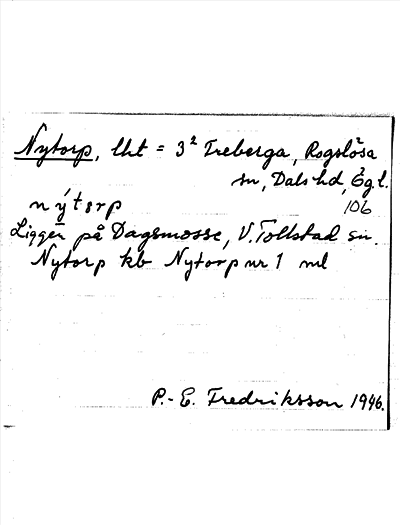 Nytorp, lht = 3² Freberga, Rogslösa
sn, Dals hd, Ög. l.
106
nýtorp
Liggen på Dagsmosse, V. Tollstad sn.
Nytorp kb Nytorp nr 1 ml
P.-E. Fredriksson 1946.